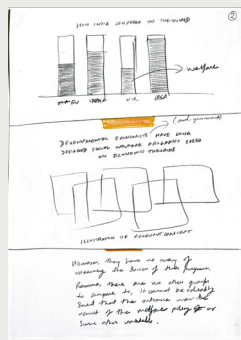 HOW INDIA COMPARES TO THE WORLD
②
→ welfare
INDIA U.K. USA
(and governments)
DEVELOPMENTAL ECONOMISTS HAVE LONG
DESIGNED SOCIAL WELFARE PROGRAMS BASED
ON ECONOMIC THEORIES
ILLUSTRATION OF RELEVANT CONCEPT
However, they have no way of
measuring the success of these programs.
Because there are no other groups
to compare to, it cannot be reliably
said that the outcome was the
result of the welfare policy or
some other variable.